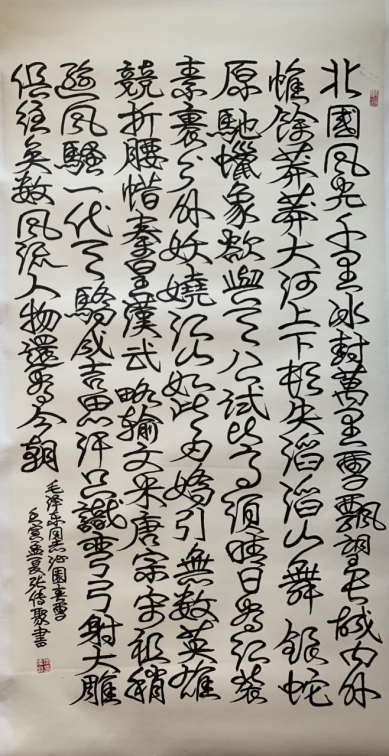 北國風光千里冰封萬里雪飄望長城內外
惟餘莽莽大河上下頓失滔滔山舞銀蛇
原馳蠟象欲與天公試比高須晴日看紅裝
素裹分外妖嬈江山如此多嬌引無數英雄
競折腰惜秦皇漢武略輸文采唐宗宋祖稍
遜風騷一代天驕成吉思汗只識彎弓射大雕
俱往矣數風流人物還看今朝
毛澤東同志沁園春雪
壬寅孟夏張傳聚書